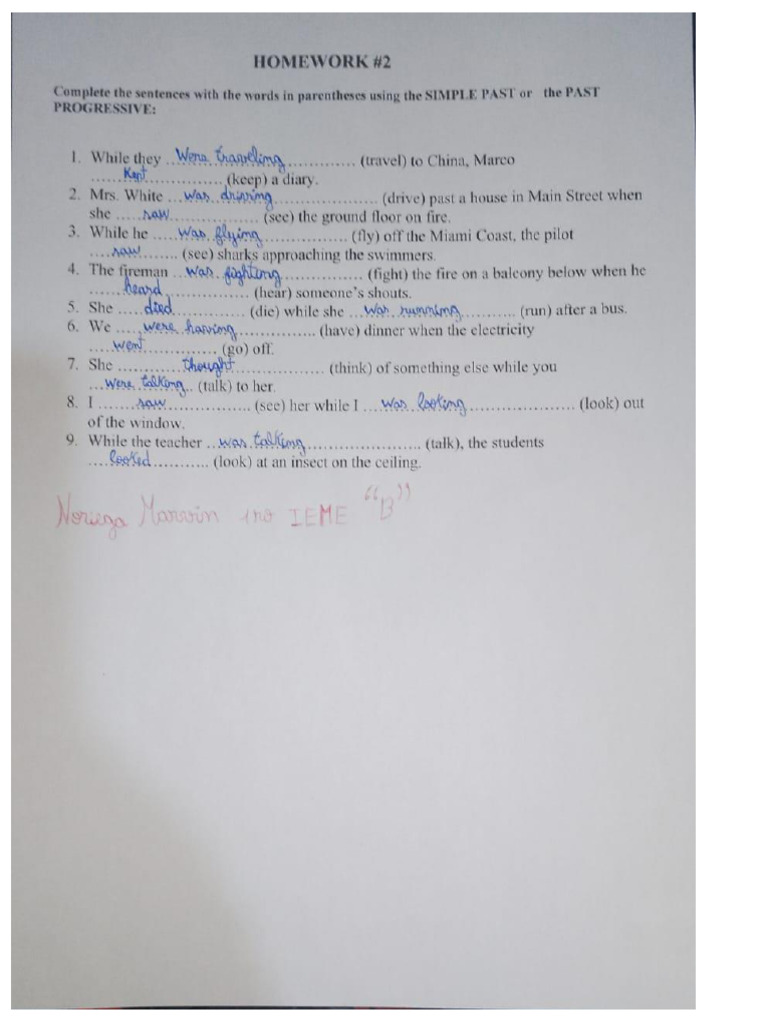 HOMEWORK #2
Complete the sentences with the words in parentheses using the SIMPLE PAST or the PAST
PROGRESSIVE:
1. While they ...Were traveling............. (travel) to China, Marco
......Kept.............. (keep) a diary.
2. Mrs. White ...was driving.................... (drive) past a house in Main Street when
she .....saw................. (see) the ground floor on fire.
3. While he ....was flying................ (fly) off the Miami Coast, the pilot
....saw....... (see) sharks approaching the swimmers.
4. The fireman ..was fighting............... (fight) the fire on a balcony below when he
......heard................ (hear) someone's shouts.
5. She .....died............. (die) while she ...was running.......... (run) after a bus.
6. We ....were having.............. (have) dinner when the electricity
....went............. (go) off.
7. She ...........thought.................. (think) of something else while you
...were talking.. (talk) to her.
8. I .......saw.............. (see) her while I ....was looking................... (look) out
of the window.
9. While the teacher ..was talking..................... (talk), the students
....looked.......... (look) at an insect on the ceiling.
Noriega Marvin 1ro IEME "B"